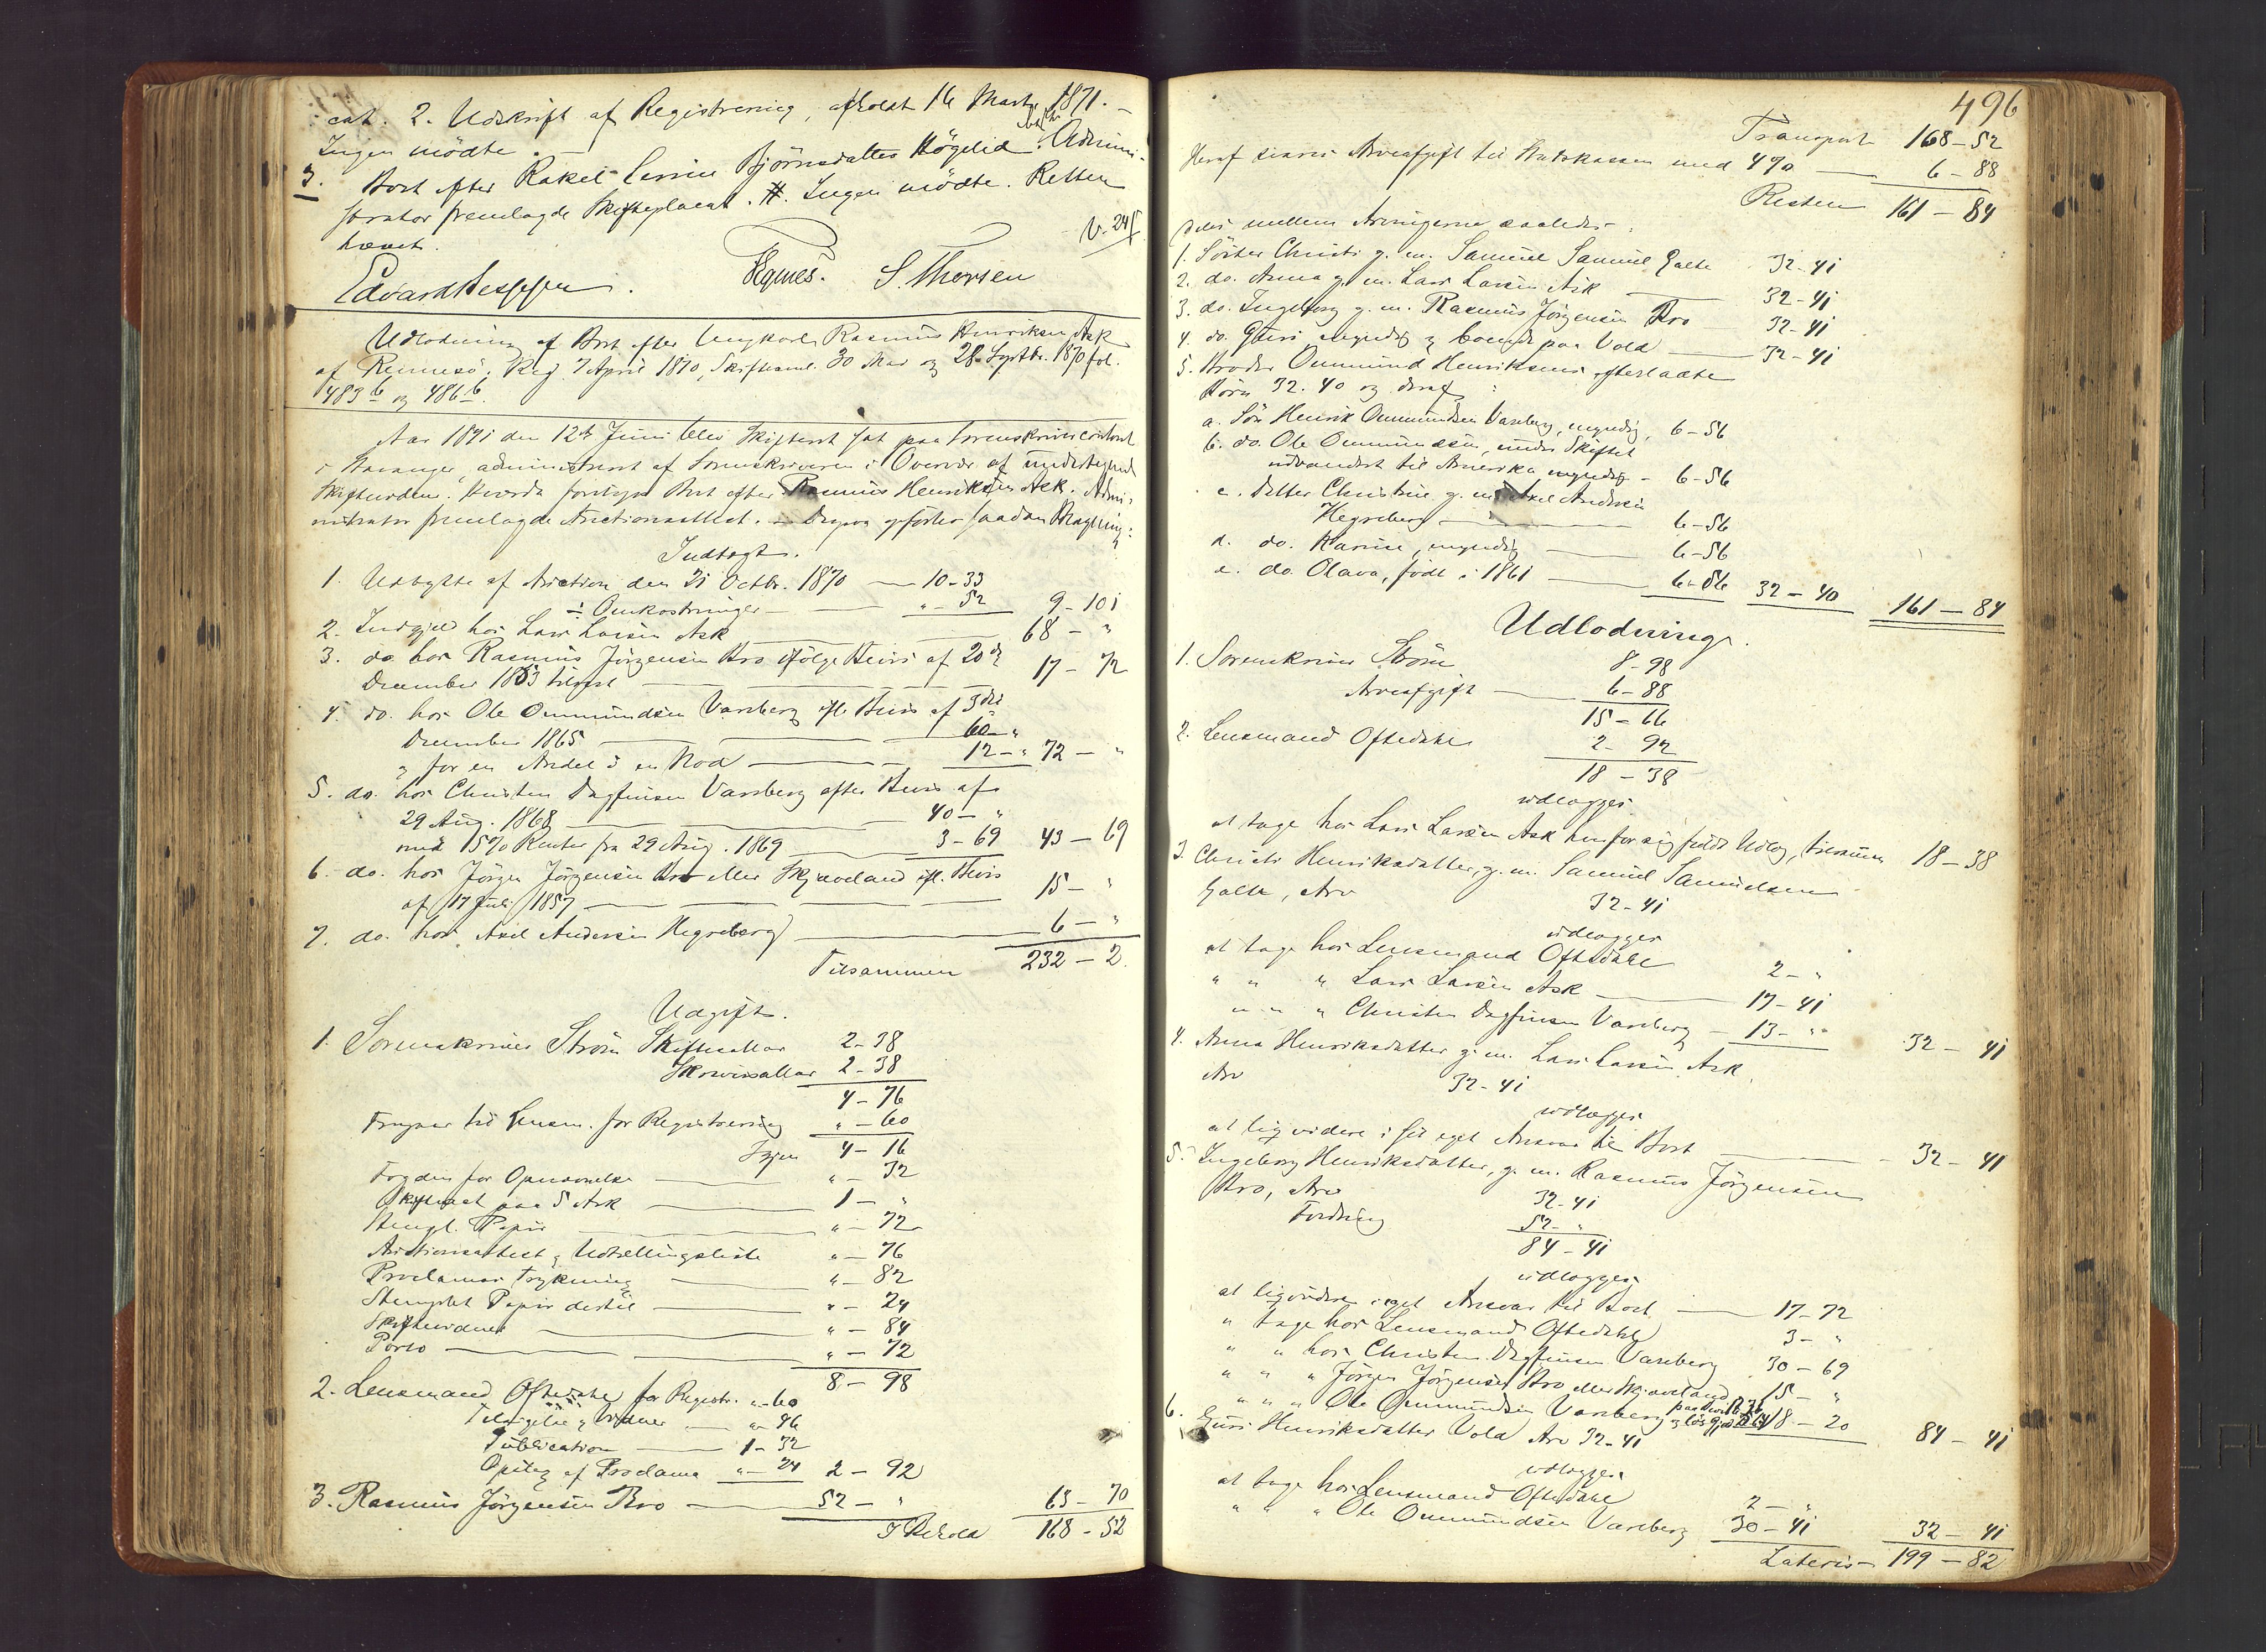 cat. 2. Udskrift af Registrering, afholdt 16 Marts 1871. –
Ingen mödte. –
3. Boet efter Rakel Serine Björnsdatter Högelid. Admini-
strator fremlagde Skifteplacat. #. Ingen mödte. Retten
hævet.
Edvard Jespersen. Hannes. S. Thorsen
Udlodning af Boet efter Ungkarl Rasmus Henriksen Ask
af Rennesö. Reg. 7 April 1870, Skiftesaml. 30 Mai og 28 Septbr. 1870 fol.
483 b og 486 b.
Aar 1871 den 12te Juni blev Skifteret sat paa Sorenskrivercontoret
i Stavanger administreret af Sorenskriveren i Overvær af undertegnede
Skiftevidner. Hvorda foretoges Boet efter Rasmus Henriksen Ask. Admi-
nistrator fremlagde Auctionsattest. – Degaa opförtes saadan Beregning:
Indtægt.
1. Udbytte af Auction den 21 Octbr. 1870 — 10-33
÷ Omkostninger — " - 52 9 - 101
2. Indgjeld hos Lars Larsen Ask — 68 - "
3. do. hos Rasmus Jörgensen Bro ifölge Bevis af 20de
December 1863 tilgode — 17 - 72
4. do. hos Ole Ommundsen Varaberg efter Bevis af 3die
December 1865 — 60 - "
og for en Andel i en Nod — 12 - " 72 - "
5. do. hos Christen Dagfinsen Varaberg efter Bevis af
29 Aug. 1868 — 40 - "
med 5% Renter fra 29 Aug. 1869 — 3 - 69 43 - 69
6. do. hos Jörgen Jörgensen Bro eller Skjæveland efter Bevis
af 17 Juli 1857 — 15 - "
7. do. hos Axel Andersen Hegreberg — 6 - "
Tilsammen 232 - 2
Udgift.
1. Sorenskriver Ström Skiftesallar 2 - 38
Skrivesallar 2 - 38
4 - 76
Fragaar til Lensm. for Registrering " - 60
Igjen 4 - 16
Fogden for Opnævnelse — " - 32
Skifteact paa 5 Ark — 1 - "
Stempl. Papir — " - 72
Auctionsattest og Udstellingsliste " - 76
Proclamas Trykning — " - 82
Stemplet Papir dertil — " - 24
Skiftevidner — " - 84
Porto — " - 72
8 - 98
2. Lensmand Oftedahl for Registr. " - 60
Tilsigelse og Vidner — " - 96
Publication — 1 - 32
Opslag af Proclama " - 24 2 - 92
3. Rasmus Jörgensen Bro — 52 - " 63 - 70
I Behold 168 - 52
496
Transport 168 - 52
Heraf svares Arveafgift til Statskassen med 4% — 6 - 88
Resten 161 - 84
deles mellem Arvingerne saaledes:
1. Söster Christi g. m. Samuel Samuel Galte 32 - 41
2. do. Anna g. m. Lars Larsen Ask — 32 - 41
3. do. Ingeborg g. m. Rasmus Jörgensen Bro 32 - 41
4. do. Guri, myndig og boende paa Vold 32 - 41
5. Broder Ommund Henriksens efterladte
Börn 32. 40 og deraf:
a. Sön Henrik Ommundsen Varaberg, myndig, 6 - 56
b. do. Ole Ommundsen, under Skiftet
udvandret til Amerika myndig - 6 - 56
c. Datter Christine g. m. Axel Andersen
Hegreberg — 6 - 56
d. do. Karine, myndig — 6 - 56
e. do. Olava, födt i 1861 — 6 - 56 32 - 40 161 - 84
Udlodning.
1. Sorenskriver Ström 8 - 98
Arveafgift — 6 - 88
15 - 66
2. Lensmand Oftedahl 2 - 92
18 - 38
udlægges
at tage hos Lars Larsen Ask hver for sig fuldt Udlæg, tilsammen 18 - 38
3. Christi Henriksdatter, g. m. Samuel Samuelsen
Galte, Arv 32 - 41
udlægges
at tage hos Lensmand Oftedahl 2 - "
" " " Lars Larsen Ask — 17 - 41
" " " Christen Dagfinsen Varaberg - 13 - " 32 - 41
4. Anna Henriksdatter g. m. Lars Larsen Ask
Arv 32 - 41
udlægges
at liqvidere i sit eget Ansvar til Boet — 32 - 41
5. Ingeborg Henriksdatter, g. m. Rasmus Jörgensen
Bro, Arv 32 - 41
Fordring 52 - "
84 - 41
udlægges
at liqvidere i eget Ansvar til Boet — 17 - 72
" tage hos Lensmand Oftedahl 3 - "
" " hos Christen Dagfinsen Varaberg 30 - 69
" " " Jörgen Jörgensen Bro eller Skjæveland 15 - "
" " " Ole Ommundsen Varaberg 18 - 20 84 - 41
6. Guri Henriksdatter Vold Arv 32 - 41
udlægges
at tage hos Lensmand Oftedahl 2 - "
" " " Ole Ommundsen Varaberg 30 - 41 32 - 41
Lateris 199 - 82